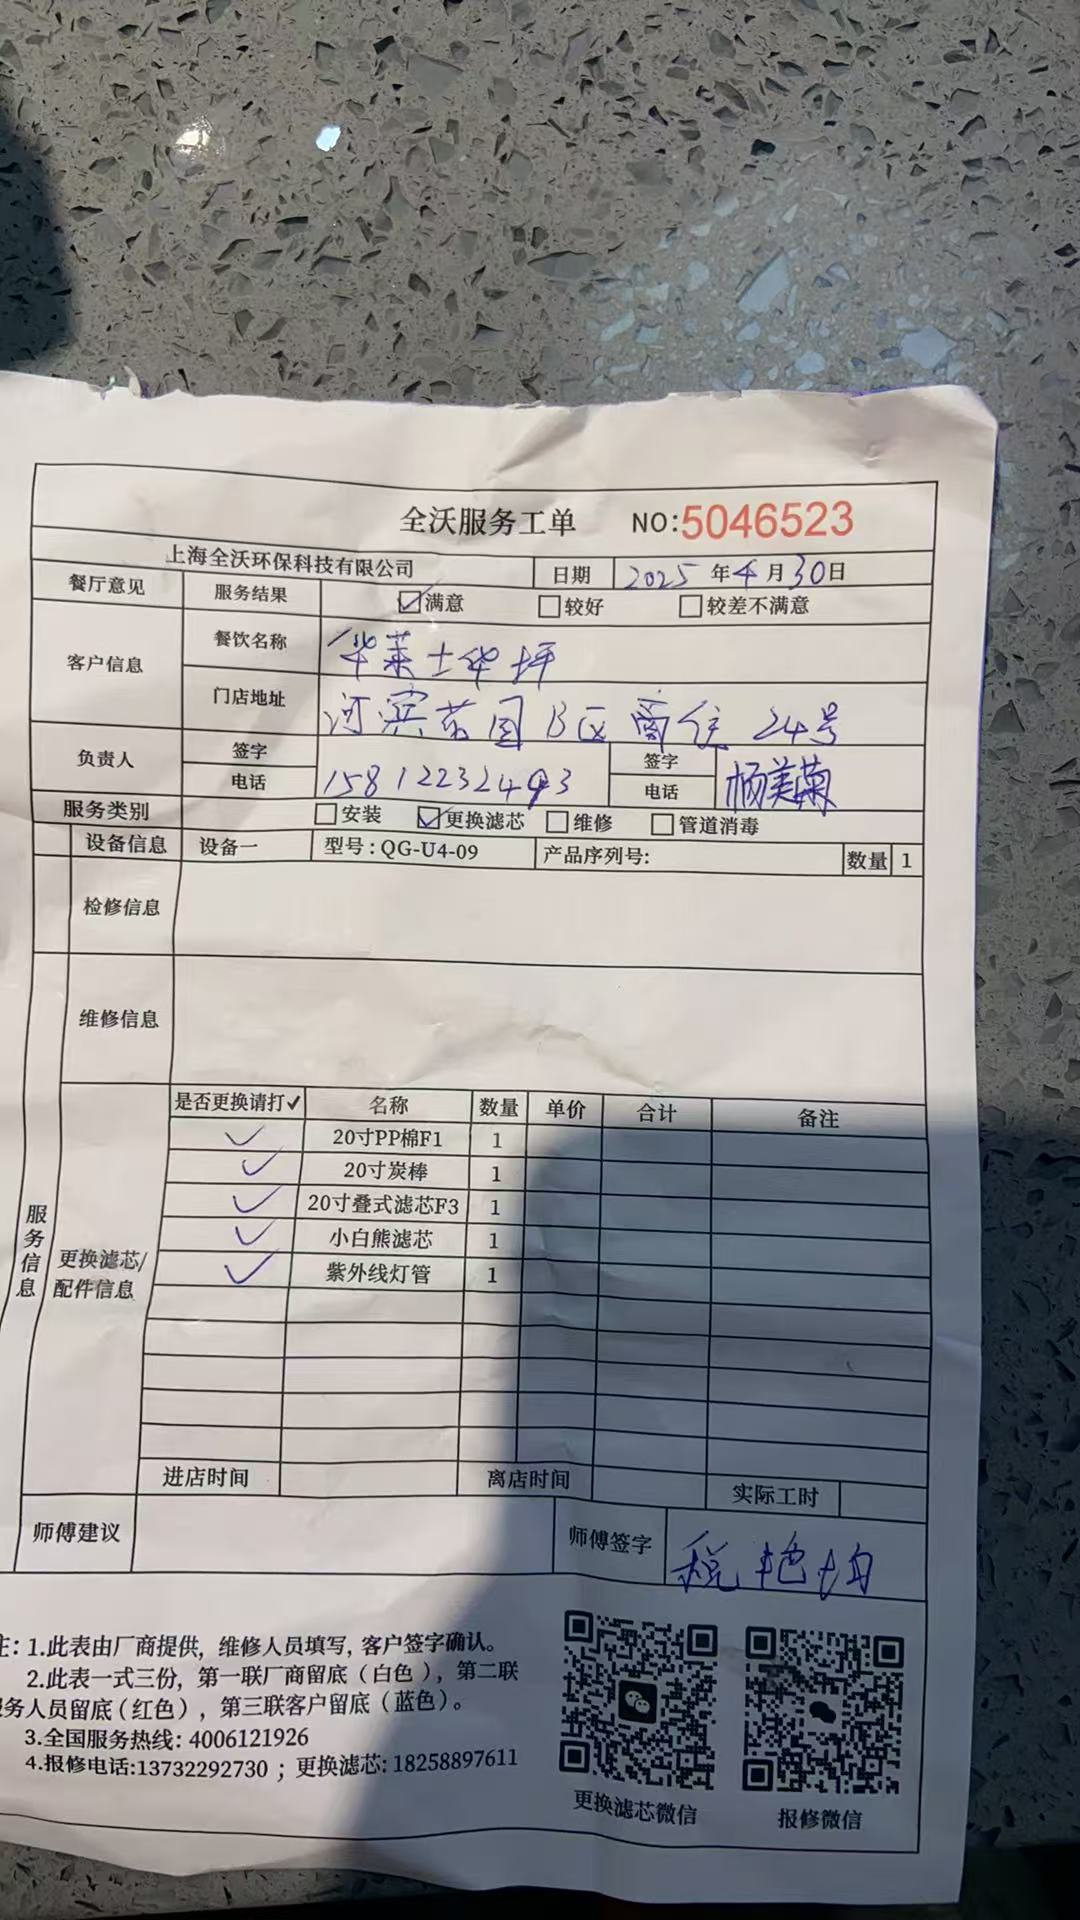 全沃服务工单 NO:5046523
上海全沃环保科技有限公司 日期 2025年4月30日
餐厅意见 服务结果 ☑满意 □较好 □较差不满意
客户信息 餐饮名称 华莱士华坪
门店地址 河滨花园B区商住24号
负责人 签字 签字
电话 15812232493 电话 杨美菊
服务类别 □安装 ☑更换滤芯 □维修 □管道消毒
设备信息 设备一 型号:QG-U4-09 产品序列号: 数量 1
检修信息
维修信息
服务信息
更换滤芯/配件信息
是否更换请打✓ 名称 数量 单价 合计 备注
✓ 20寸PP棉F1 1
✓ 20寸炭棒 1
✓ 20寸叠式滤芯F3 1
✓ 小白熊滤芯 1
✓ 紫外线灯管 1
进店时间 离店时间 实际工时
师傅建议 师傅签字
注: 1.此表由厂商提供, 维修人员填写, 客户签字确认。
2.此表一式三份, 第一联厂商留底（白色）, 第二联
服务人员留底(红色）, 第三联客户留底（蓝色）。
3.全国服务热线: 4006121926
4.报修电话:13732292730 ; 更换滤芯: 18258897611
更换滤芯微信 报修微信